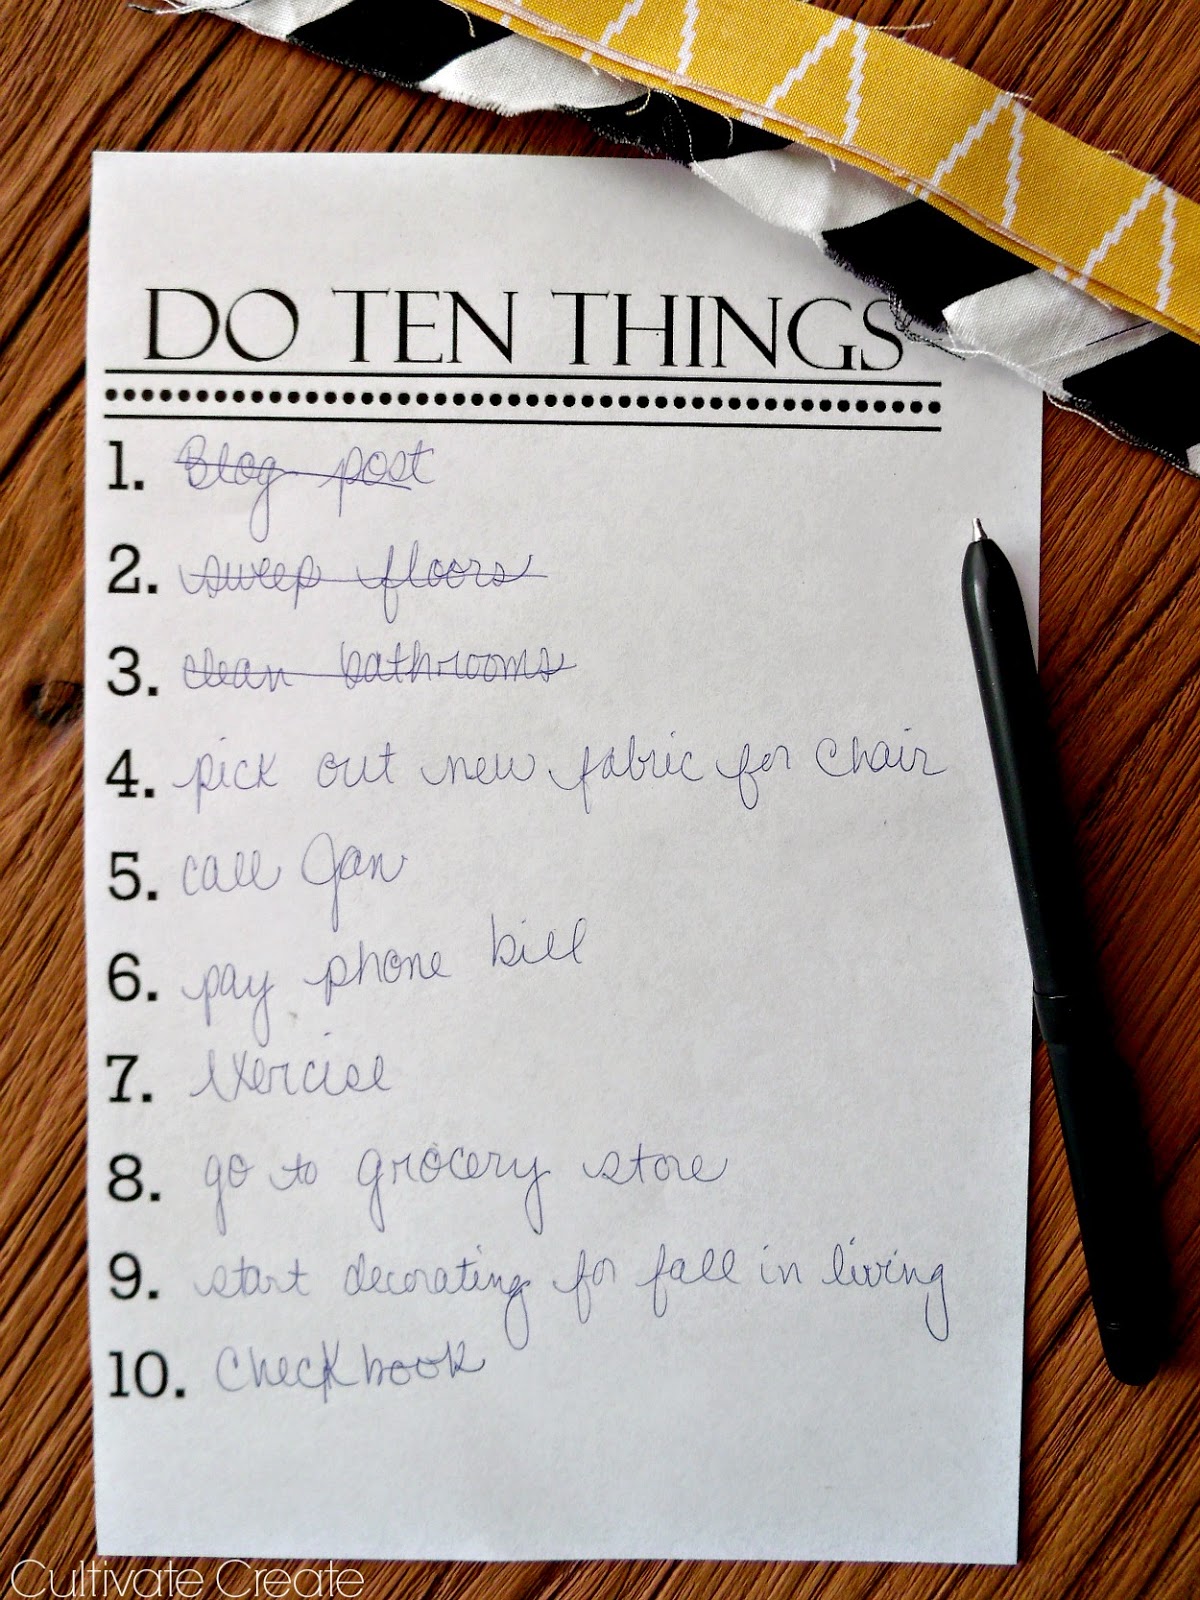 DO TEN THINGS
1. Blog post
2. sweep floors
3. clean bathrooms
4. pick out new fabric for chair
5. call Jan
6. pay phone bill
7. exercise
8. go to grocery store
9. start decorating for fall in living
10. Checkbook
Cultivate Create